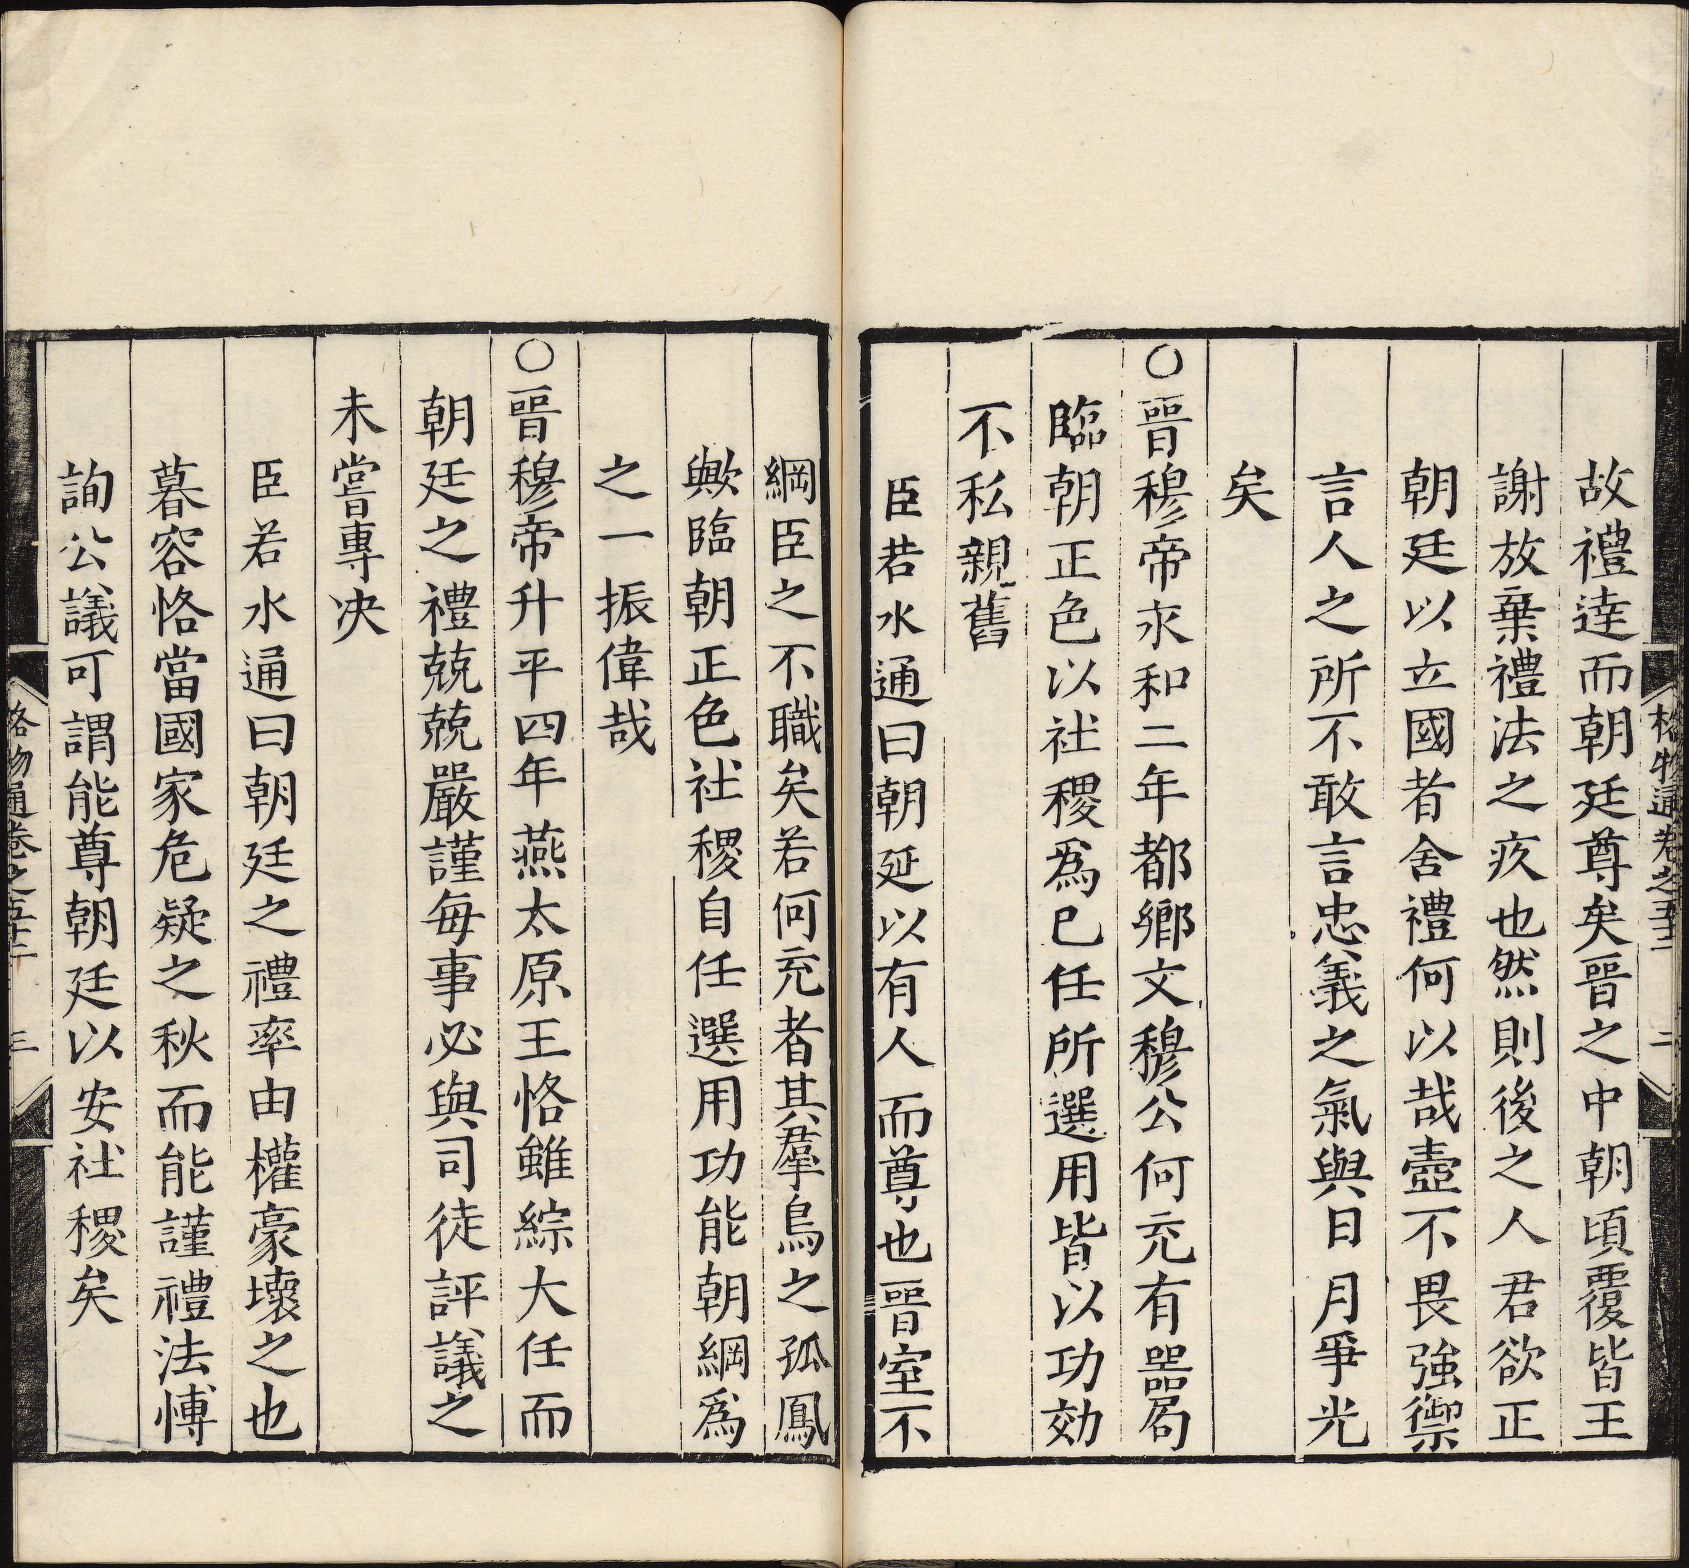 故禮達而朝廷尊矣晉之中朝頃覆皆王
謝放棄禮法之疚也然則後之人君欲正
朝廷以立國者舍禮何以哉壼不畏強禦
言人之所不敢言忠義之氣與日月爭光
矣
〇晉穆帝永和二年都鄉文穆公何充有噐局
臨朝正色以社稷爲已任所選用皆以功効
不私親舊
臣若水通曰朝延以有人而尊也晉室不
綱臣之不職矣若何充者其羣鳥之孤鳳
歟臨朝正色社稷自任選用功能朝綱爲
之一振偉哉
〇晉穆帝升平四年燕太原王恪雖綜大任而
朝廷之禮兢兢嚴謹每事必與司徒評議之
未嘗專决
臣若水通曰朝廷之禮率由權豪壞之也
暮容恪當國家危疑之秋而能謹禮法愽
詢公議可謂能尊朝廷以安社稷矣
格物通卷之五十二 二
格物通卷之五十二 三